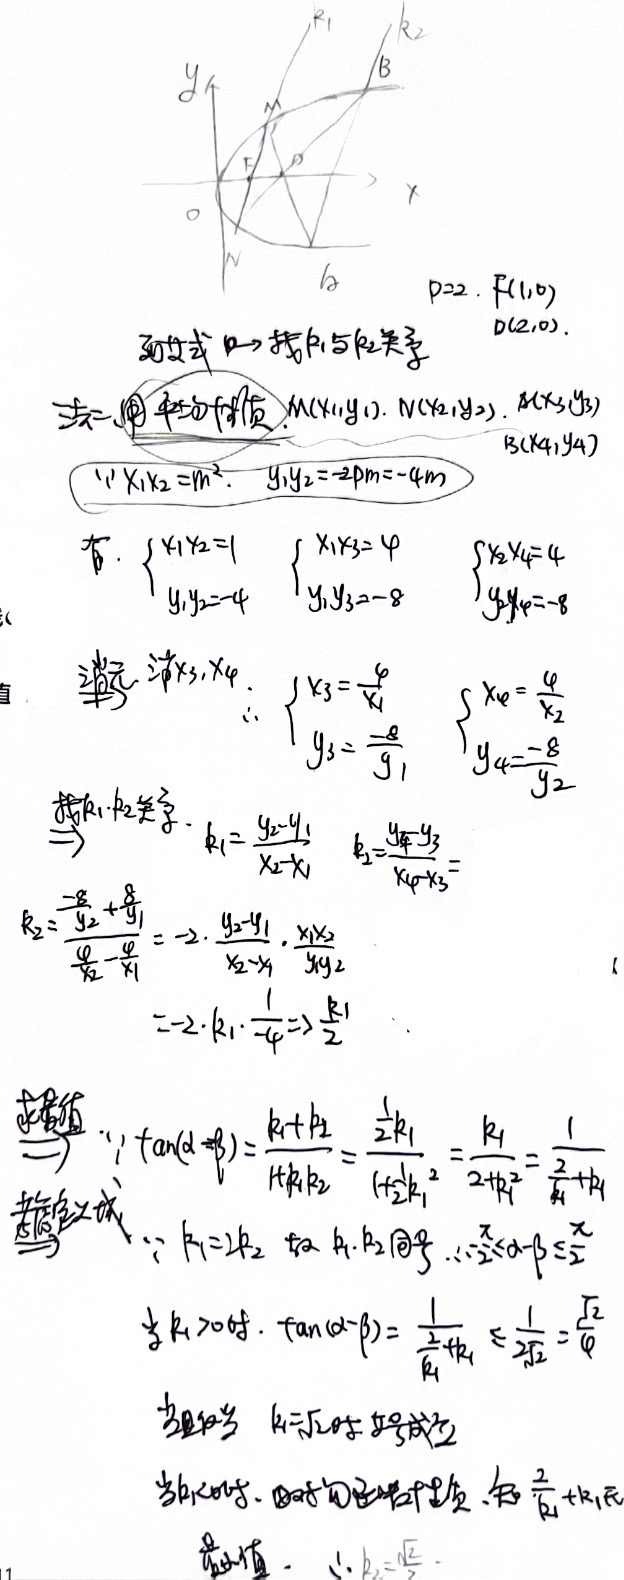 k₁
k₂
y
B
M
F D
x
O
N
A
P=2. F(1,0)
D(2,0).
到文式 → 找k₁与k₂关系
法二. 用 平均性质. M(x₁,y₁). N(x₂,y₂). A(x₃,y₃)
B(x₄,y₄)
∵ x₁x₂=m². y₁y₂=-2pm=-4m
有. { x₁x₂=1 { x₁x₃=4 { x₂x₄=4
y₁y₂=-4 y₁y₃=-8 y₂y₄=-8
消元 消x₃,x₄. ∴ { x₃=4/x₁ { x₄=4/x₂
y₃=-8/y₁ y₄=-8/y₂
找k₁.k₂关系. ⇒ k₁=(y₂-y₁)/(x₂-x₁) k₂=(y₄-y₃)/(x₄-x₃)=
k₂=(-8/y₂+8/y₁)/(4/x₂-4/x₁)=-2·(y₂-y₁)/(x₂-x₁)·x₁x₂/y₁y₂
=-2·k₁·1/-4=>k₁/2
求最值 ⇒ ∵ tan(α-β)=(k₁+k₂)/(1+k₁k₂)=(½k₁)/(1+½k₁²)=k₁/(2+k₁²)=1/(2/k₁+k₁)
定义域 ⇒ ∵ k₁=2k₂ 故 k₁.k₂同号 ∴-π/2≤α-β≤π/2
当k₁>0时. tan(α-β)=1/(2/k₁+k₁)≤1/2√2=√2/4
当且仅当 k₁=√2时 等号成立
当k₁<0时. 由对勾函数性质. 知 2/k₁+k₁无
最小值. ∴ k₂=√2/2.